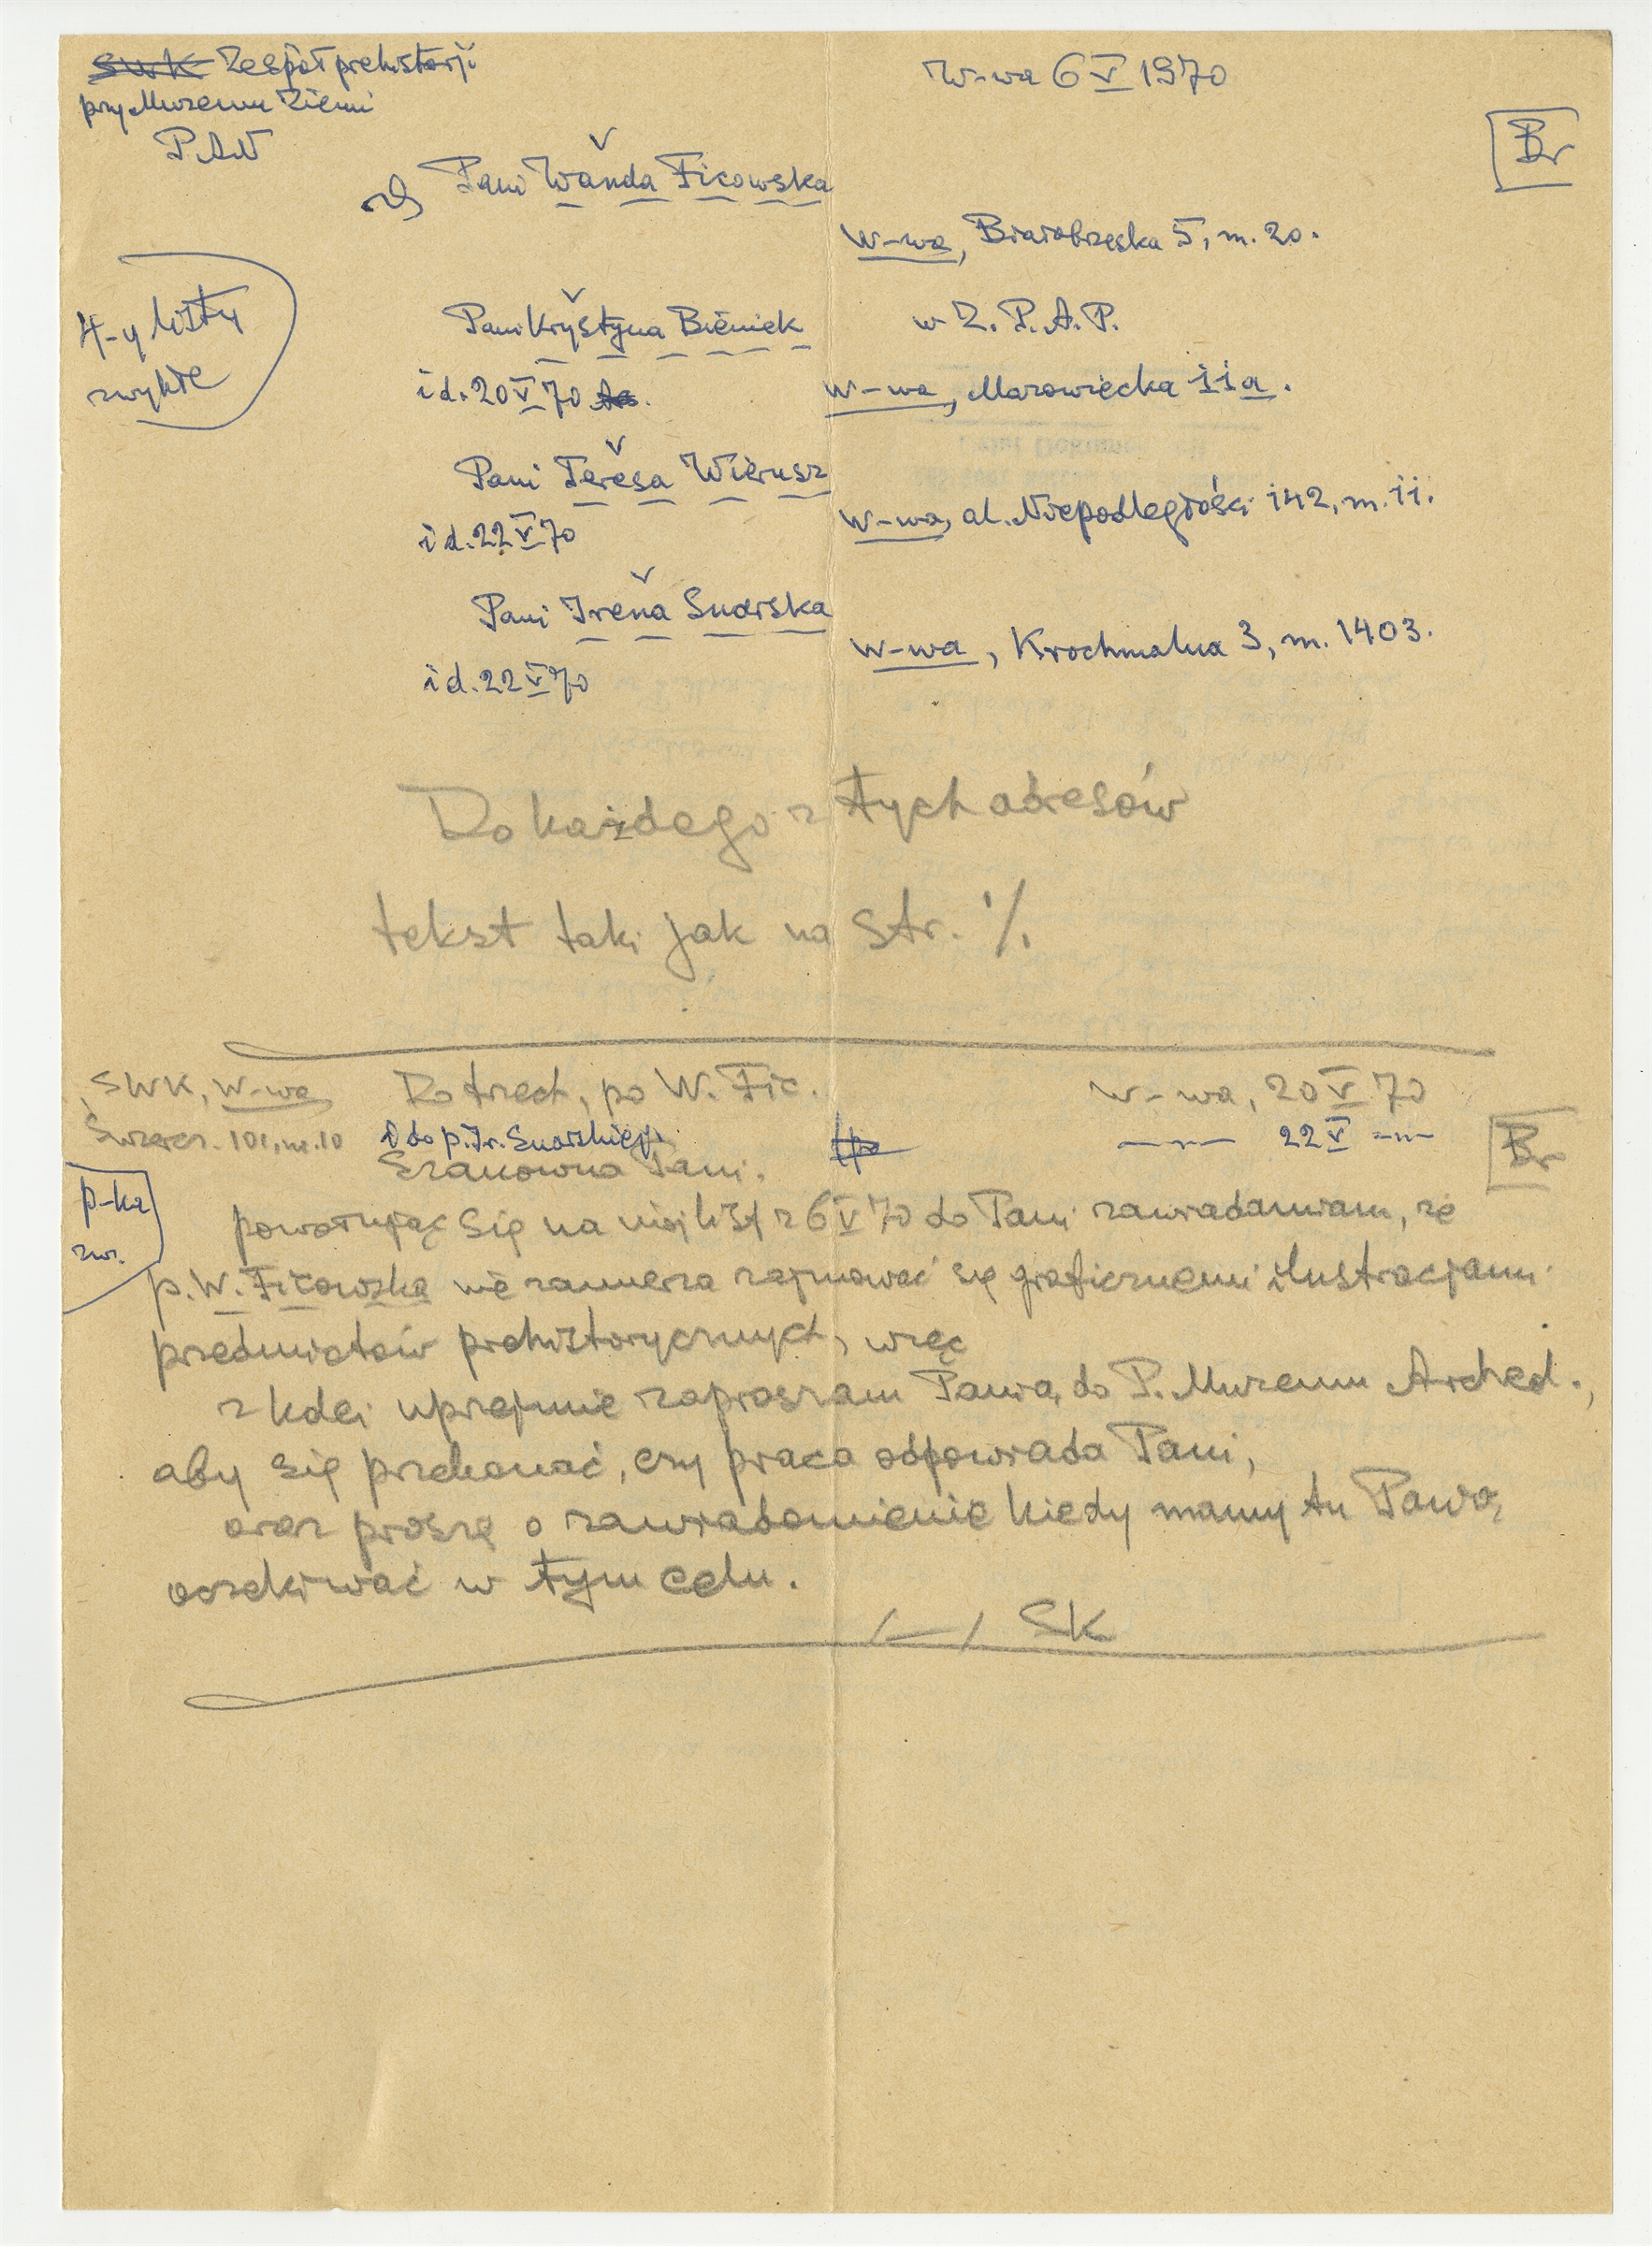 SWK Zespół prehistorji
przy Muzeum Ziemi
PAN
W-wa 6 V 1970
Br
Pani Wanda Ficowska
W-wa, Białobrzeska 5, m. 20.
4-y listy
zwykłe
Pani Krystyna Bieniek
w Z. P. A. P.
i d. 20 V 70
W-wa, Mazowiecka 11a.
Pani Teresa Wierusz
W-wa, al. Niepodległości 142, m. 11.
i d. 22 V 70
Pani Irena Snarska
W-wa, Krochmalna 3, m. 1403.
i d. 22 V 70
Do każdego z tych adresów
tekst taki jak na str. 1/.
SWK, W-wa Do trzech, po W. Fic. W-wa, 20 V 70
101, m. 10 i do p. Ir. Snarskiej —"— 22 V —"—
Br
Szanowna Pani.
p-ka
zw.
powołując się na mój list z 6 V 70 do Pani zawiadamiam, że
p. W. Ficowska nie zamierza zajmować się graficznemi ilustracjami
przedmiotów prehistorycznych, więc
z kolei uprzejmie zapraszam Panią do P. Muzeum Archeol.,
aby się przekonać, czy praca odpowiada Pani,
oraz proszę o zawiadomienie kiedy mamy tu Panią
oczekiwać w tym celu.
/—/ SK